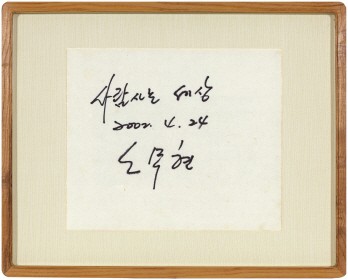 사람사는 세상
2002. 4. 24
노무현